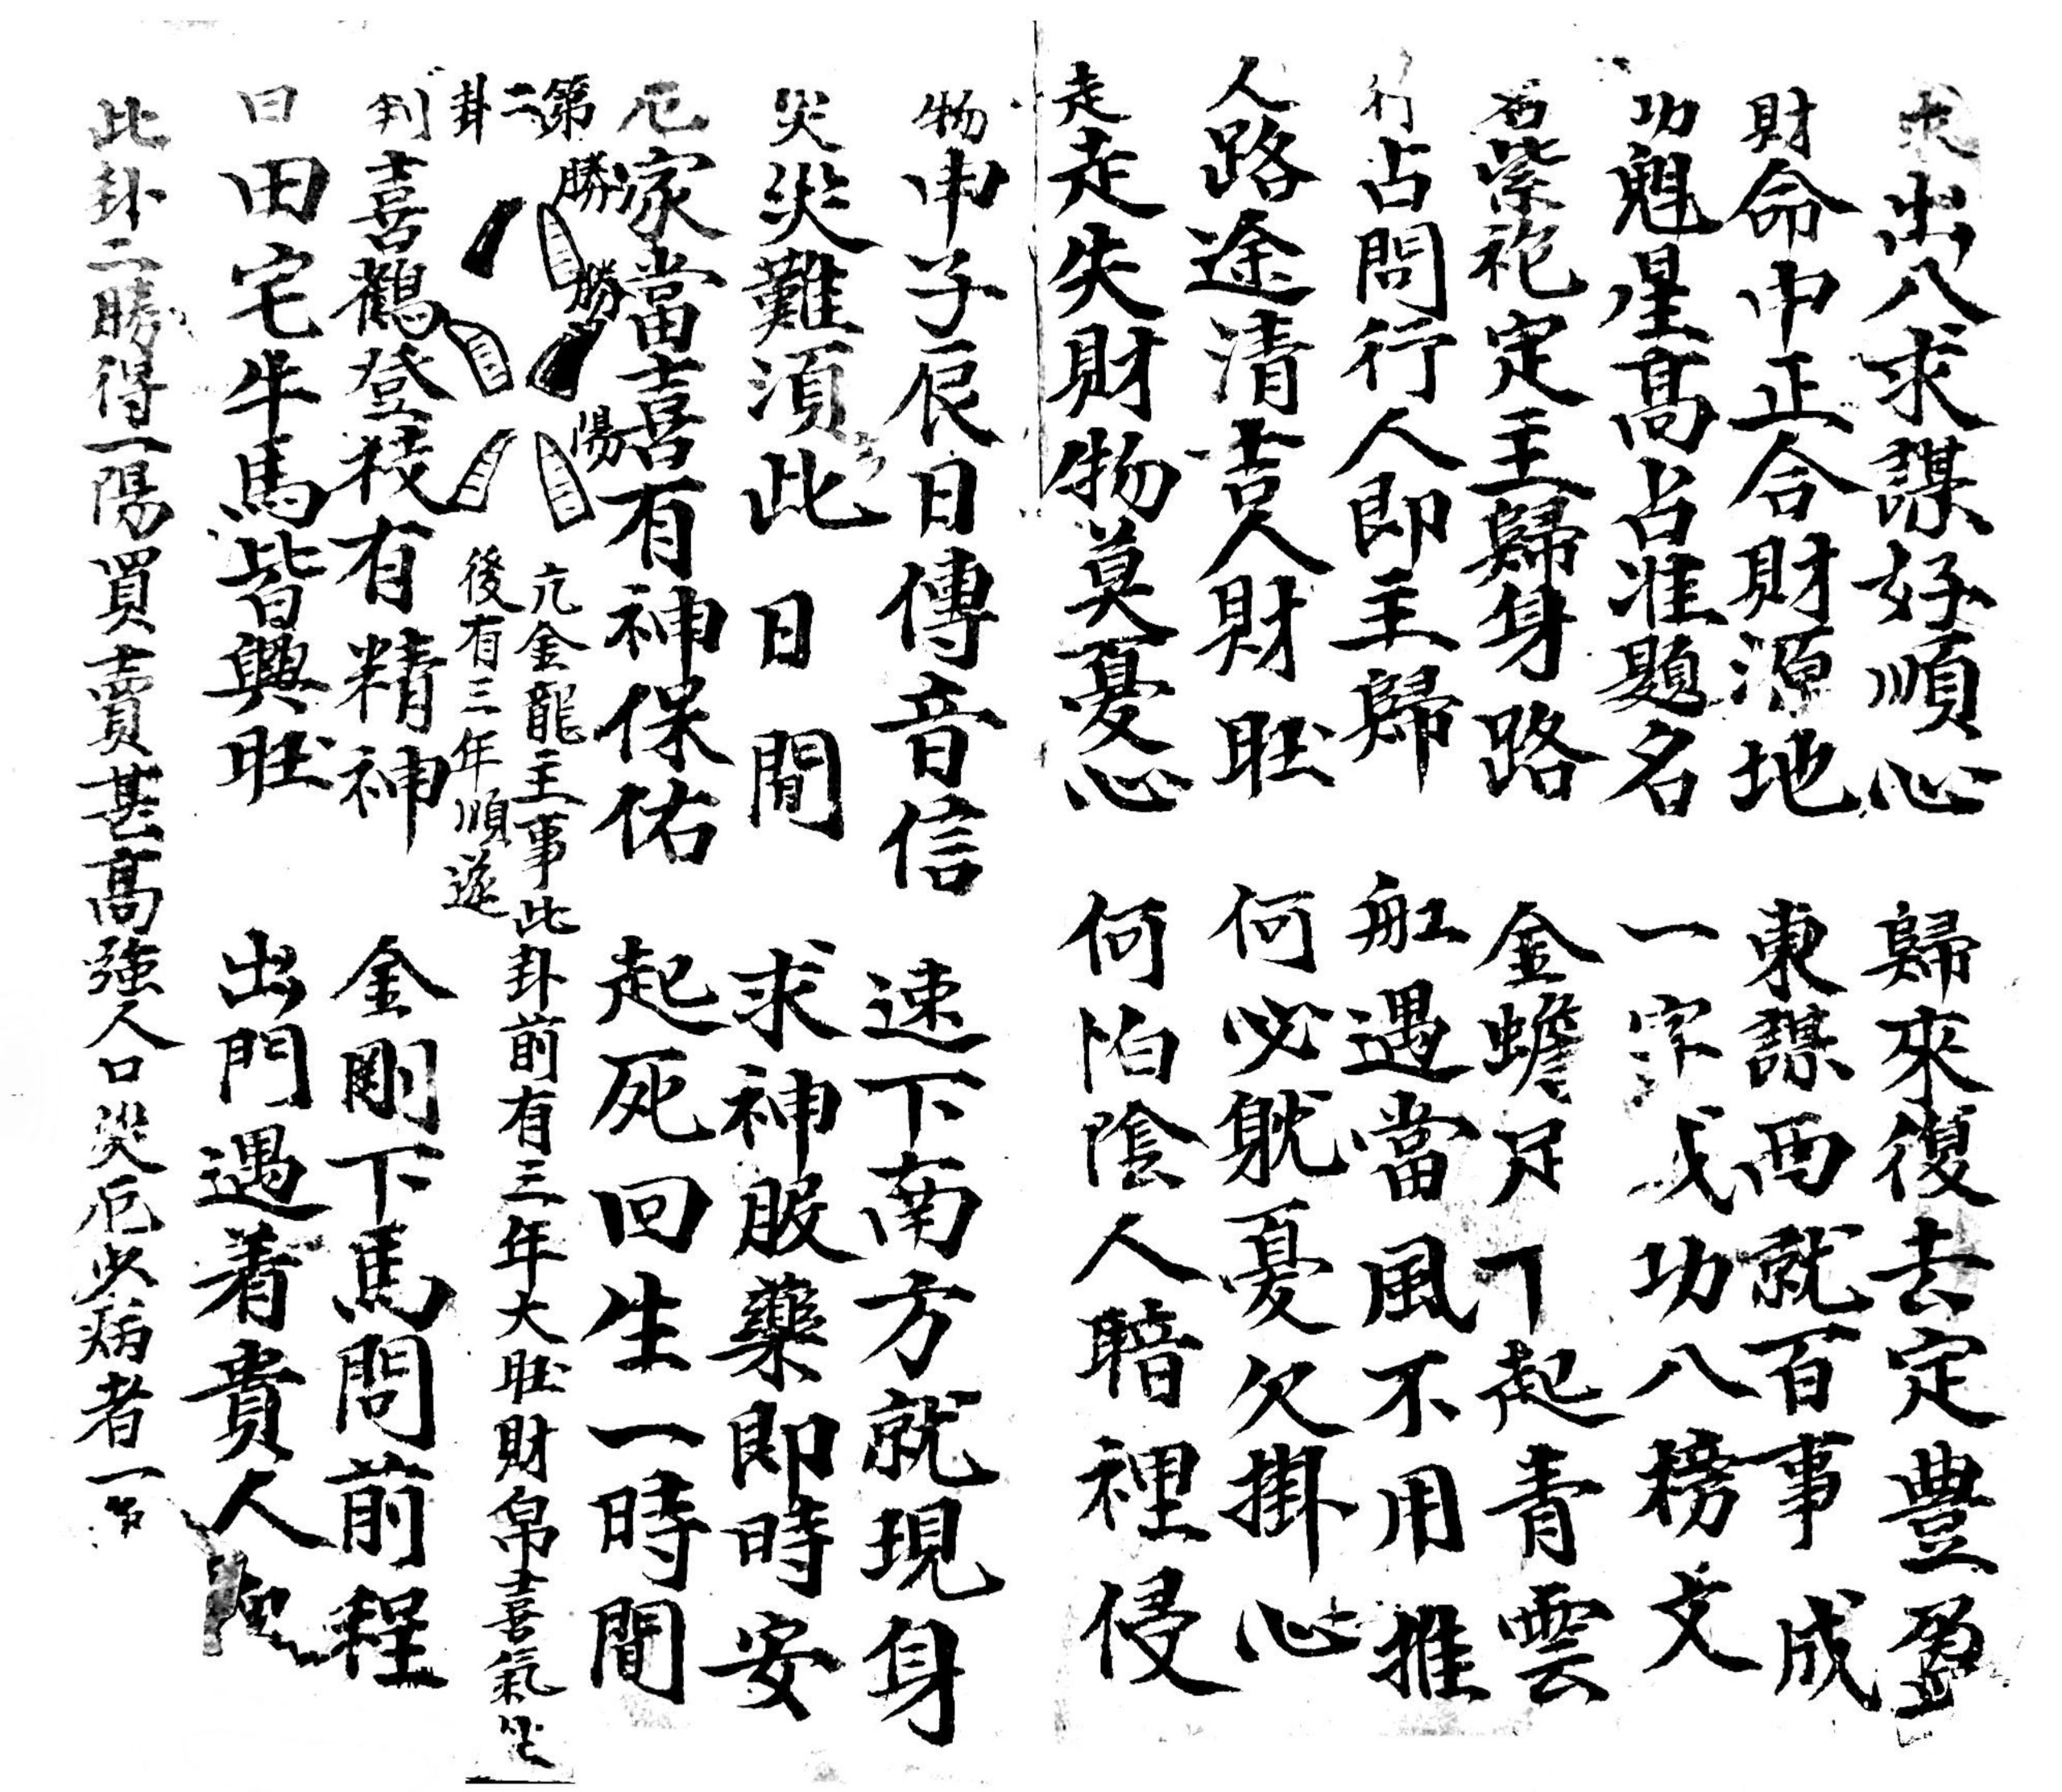 求出入求謀好順心 歸來復去定豐盈
財命中正合財源地 東謀西就百事成
功魁星高占准題名 一字成功入榜文
名紫袍定主歸身路 金蟾足下起青雲
行占問行人即主歸 舡遇當風不用推
人路途清吉人財旺 何必躭憂欠掛心
走走失財物莫憂心 何怕陰人暗裡侵
物申子辰日傳音信 速下南方就現身
災災難須此日間 求神服藥即時安
厄家當喜有神保佑 起死回生一時間
第二卦
勝
勝
陽
亢金龍主事此卦前有三年大旺財帛喜氣
後有三年順遂
判喜鶴登枝有精神 金剛下馬問前程
曰田宅牛馬皆興旺 出門遇着貴人
此卦二勝得一陽買賣甚高強人口災厄少病者一